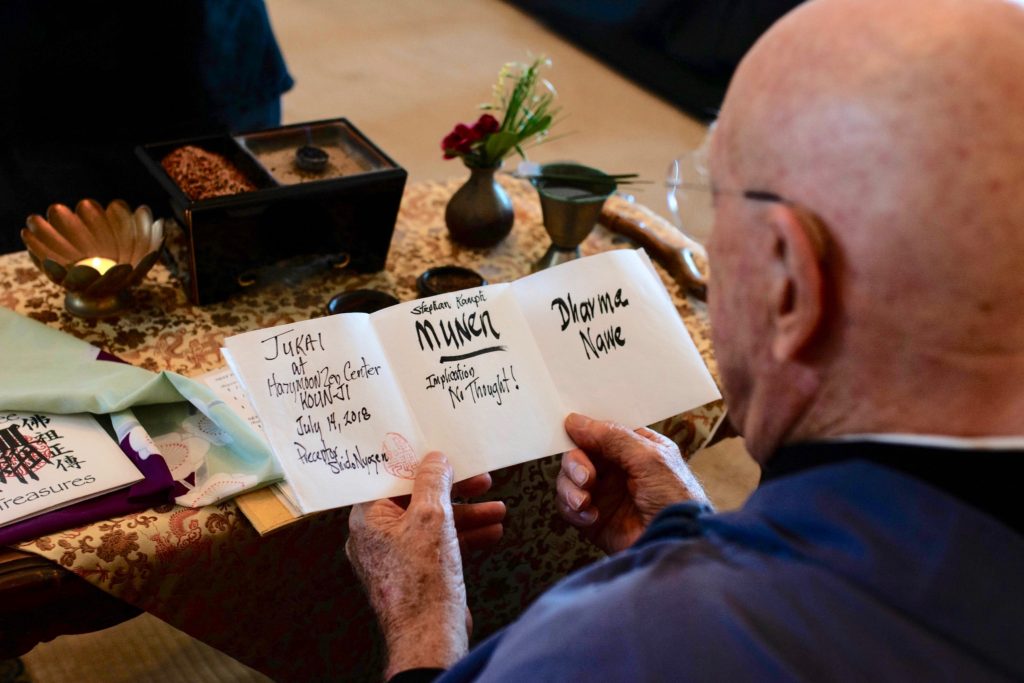 JUKAI
at
HazyMoon Zen Center
KOUNJI
July 14, 2018
Preceptor
Shido Nyogen
Stephan Kampf
MUNEN
Implication
No Thought!
Dharma
Name
佛祖正傳
Treasures